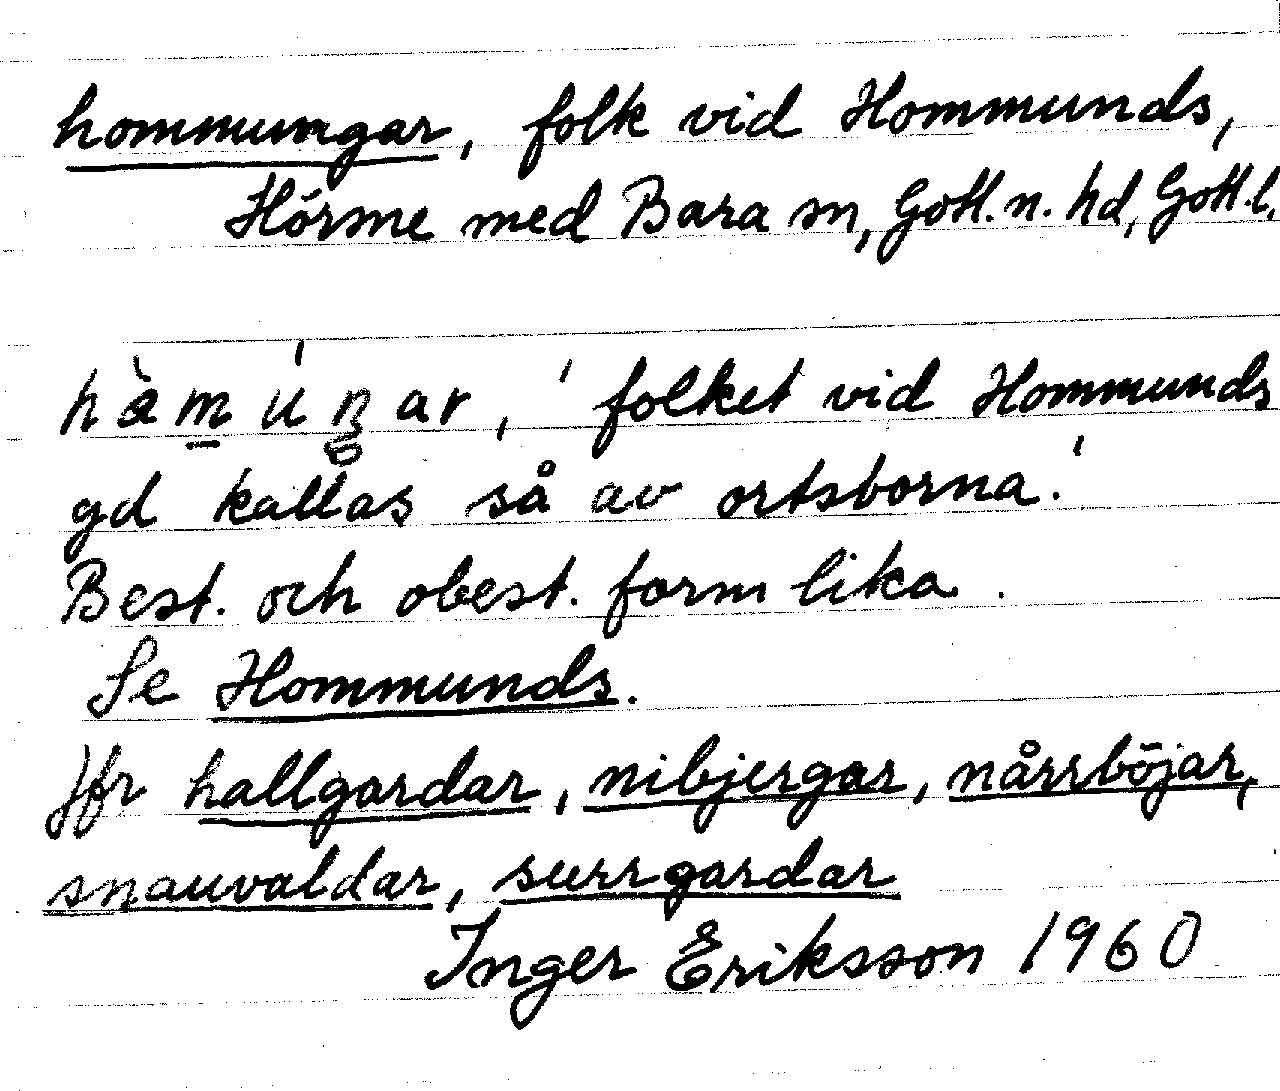 hommungar, folk vid Hommunds,
Hörsne med Bara sn, Gotl. n. hd, Gotl. l.
'folket vid Hommunds
gd kallas så av ortsborna.'
Best. och obest. form lika.
Se Hommunds.
Jfr hallgardar, nibjergar, nårrböjar,
snauvaldar, surrgardar
Inger Eriksson 1960